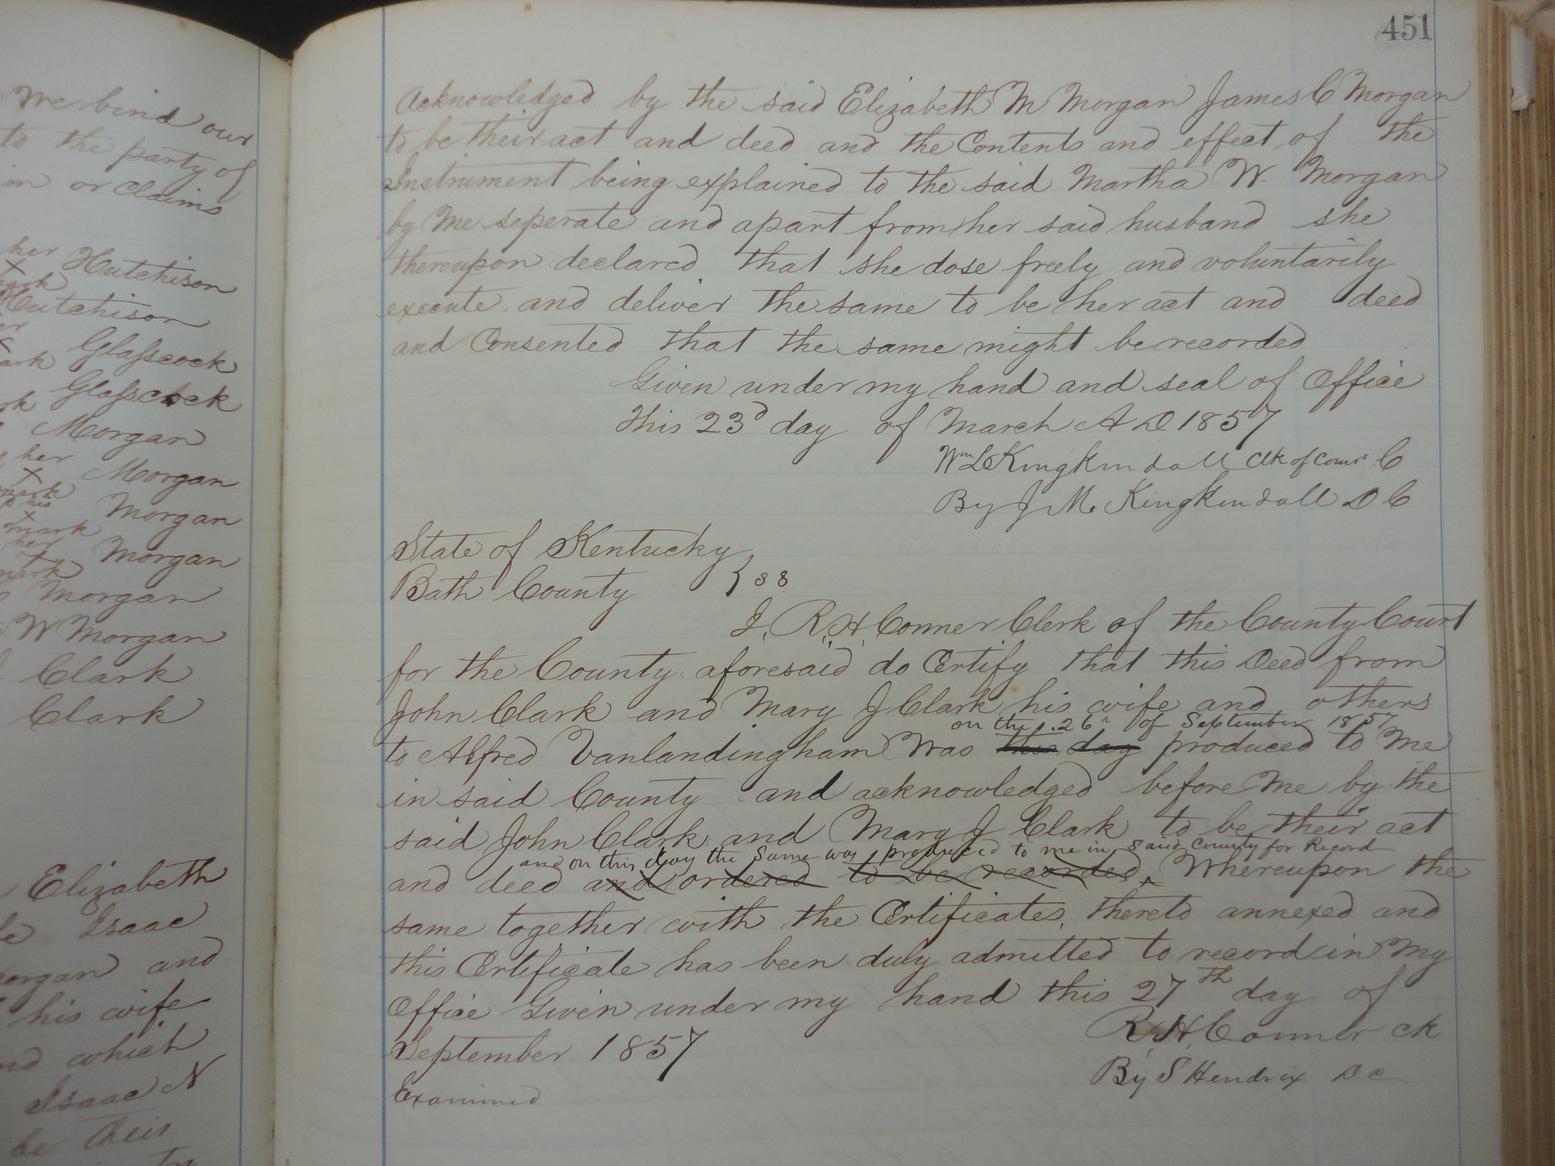 We bind our
to the party of
or Claims
her Hutchison
X
mark
Hutchison
X
mark Glasscock
Glasscock
Morgan
her
X Morgan
mark
his
X Morgan
mark
her
X Morgan
mark
Morgan
W Morgan
Clark
Clark
Elizabeth
Isaac
Morgan and
his wife
and which
Isaac N
be their
451
Acknowledged by the said Elizabeth M Morgan James C Morgan
to be their act and deed and the Contents and effect of the
Instrument being explained to the said Martha W. Morgan
by Me seperate and apart from her said husband she
thereupon declared that she dose freely and voluntarily
execute and deliver the same to be her act and deed
and Consented that the same might be recorded
Given under my hand and seal of Office
this 23d day of March A D 1857
Wm L Kingkendall Clk of Cour C
By J M. Kingkendall D C
State of Kentucky
Bath County } SS
I, R. H Conner Clerk of the County Court
for the County aforesaid do Certify that this Deed from
John Clark and Mary J Clark his wife and others
on the 26th of September 1857
to Alfred Vanlandingham Was this day produced to Me
in said County and acknowledged before Me by the
said John Clark and Mary J Clark to be their act
and on this day the Same was produced to me in Said County for Record
and deed and ordered to be recorded, Whereupon the
same together with the Certificates thereto annexed and
this Certificate has been duly admitted to record in My
Office Given under my hand this 27th day of
September 1857
R. H. Conner Ck
By S Hendrix D C
Examined